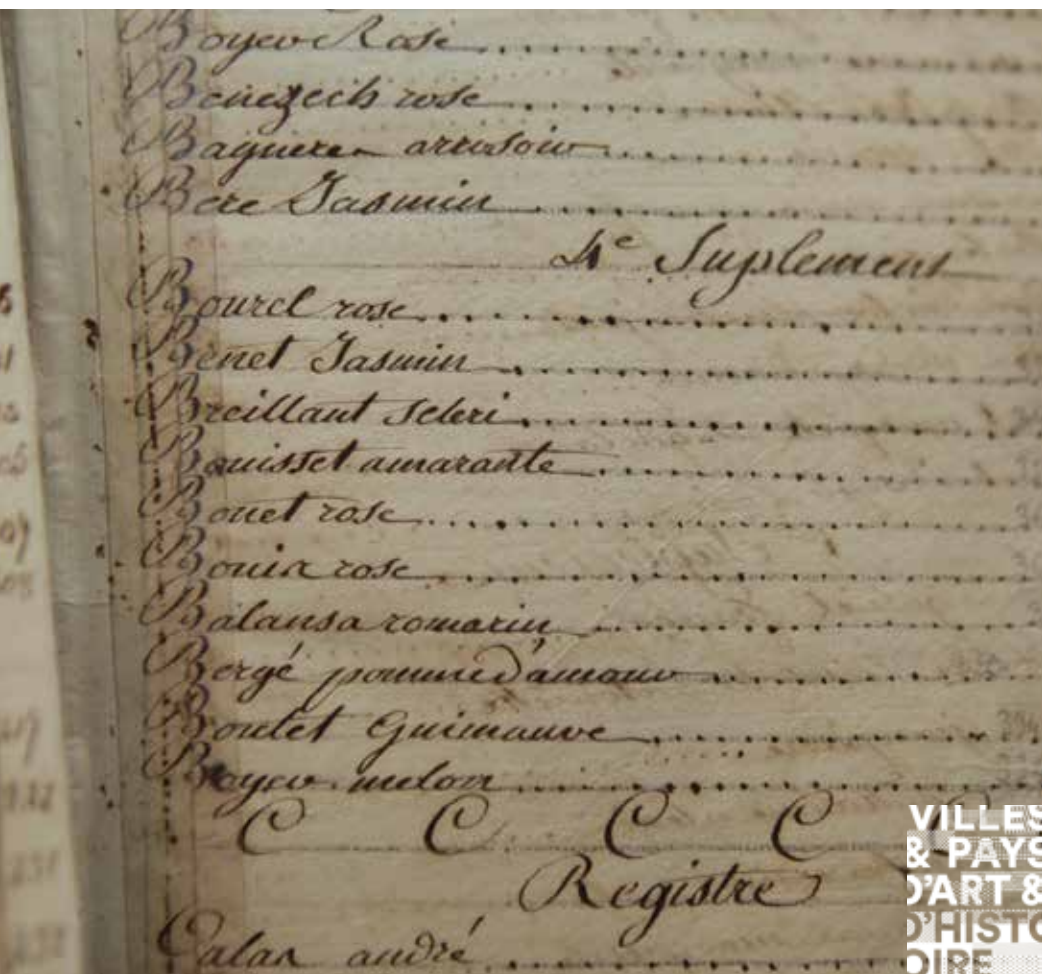 Boyer Rose
Benezech rose
Bagneres arrosoir
Bere Jasmin
4e Suplement
Bourel rose
Benet Jasmin
Breillant seleri
Bouisset amarante
Bouet rose
Bouix rose
Balansa romarin
Bergé pomme d'amour
Boutet Guimauve
Boyer melon
C C C C
Registre
Calas andré
VILLES
& PAYS
D'ART &
D'HISTO
OIRE